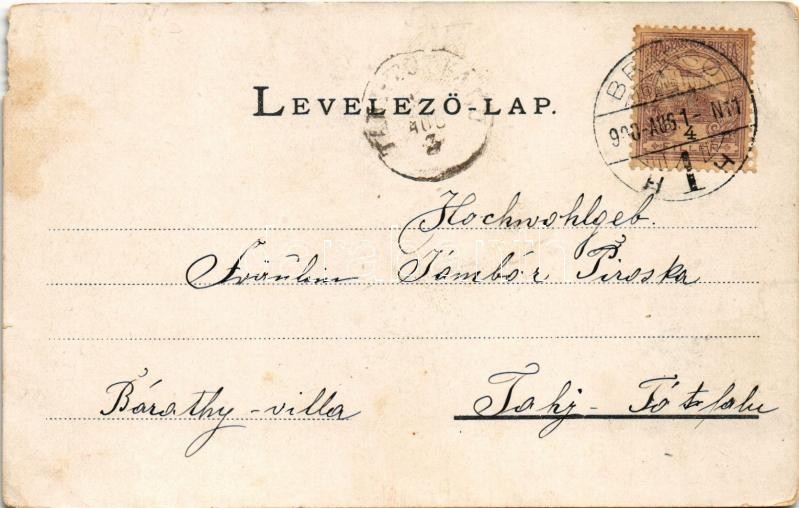 LEVELEZŐ-LAP.
AUG
3
900-AUG 1- N11
4
1
Hochwohlgeb.
Fräulein Jámbór Piroska
Bárathy-villa Tahi- Tótfalu